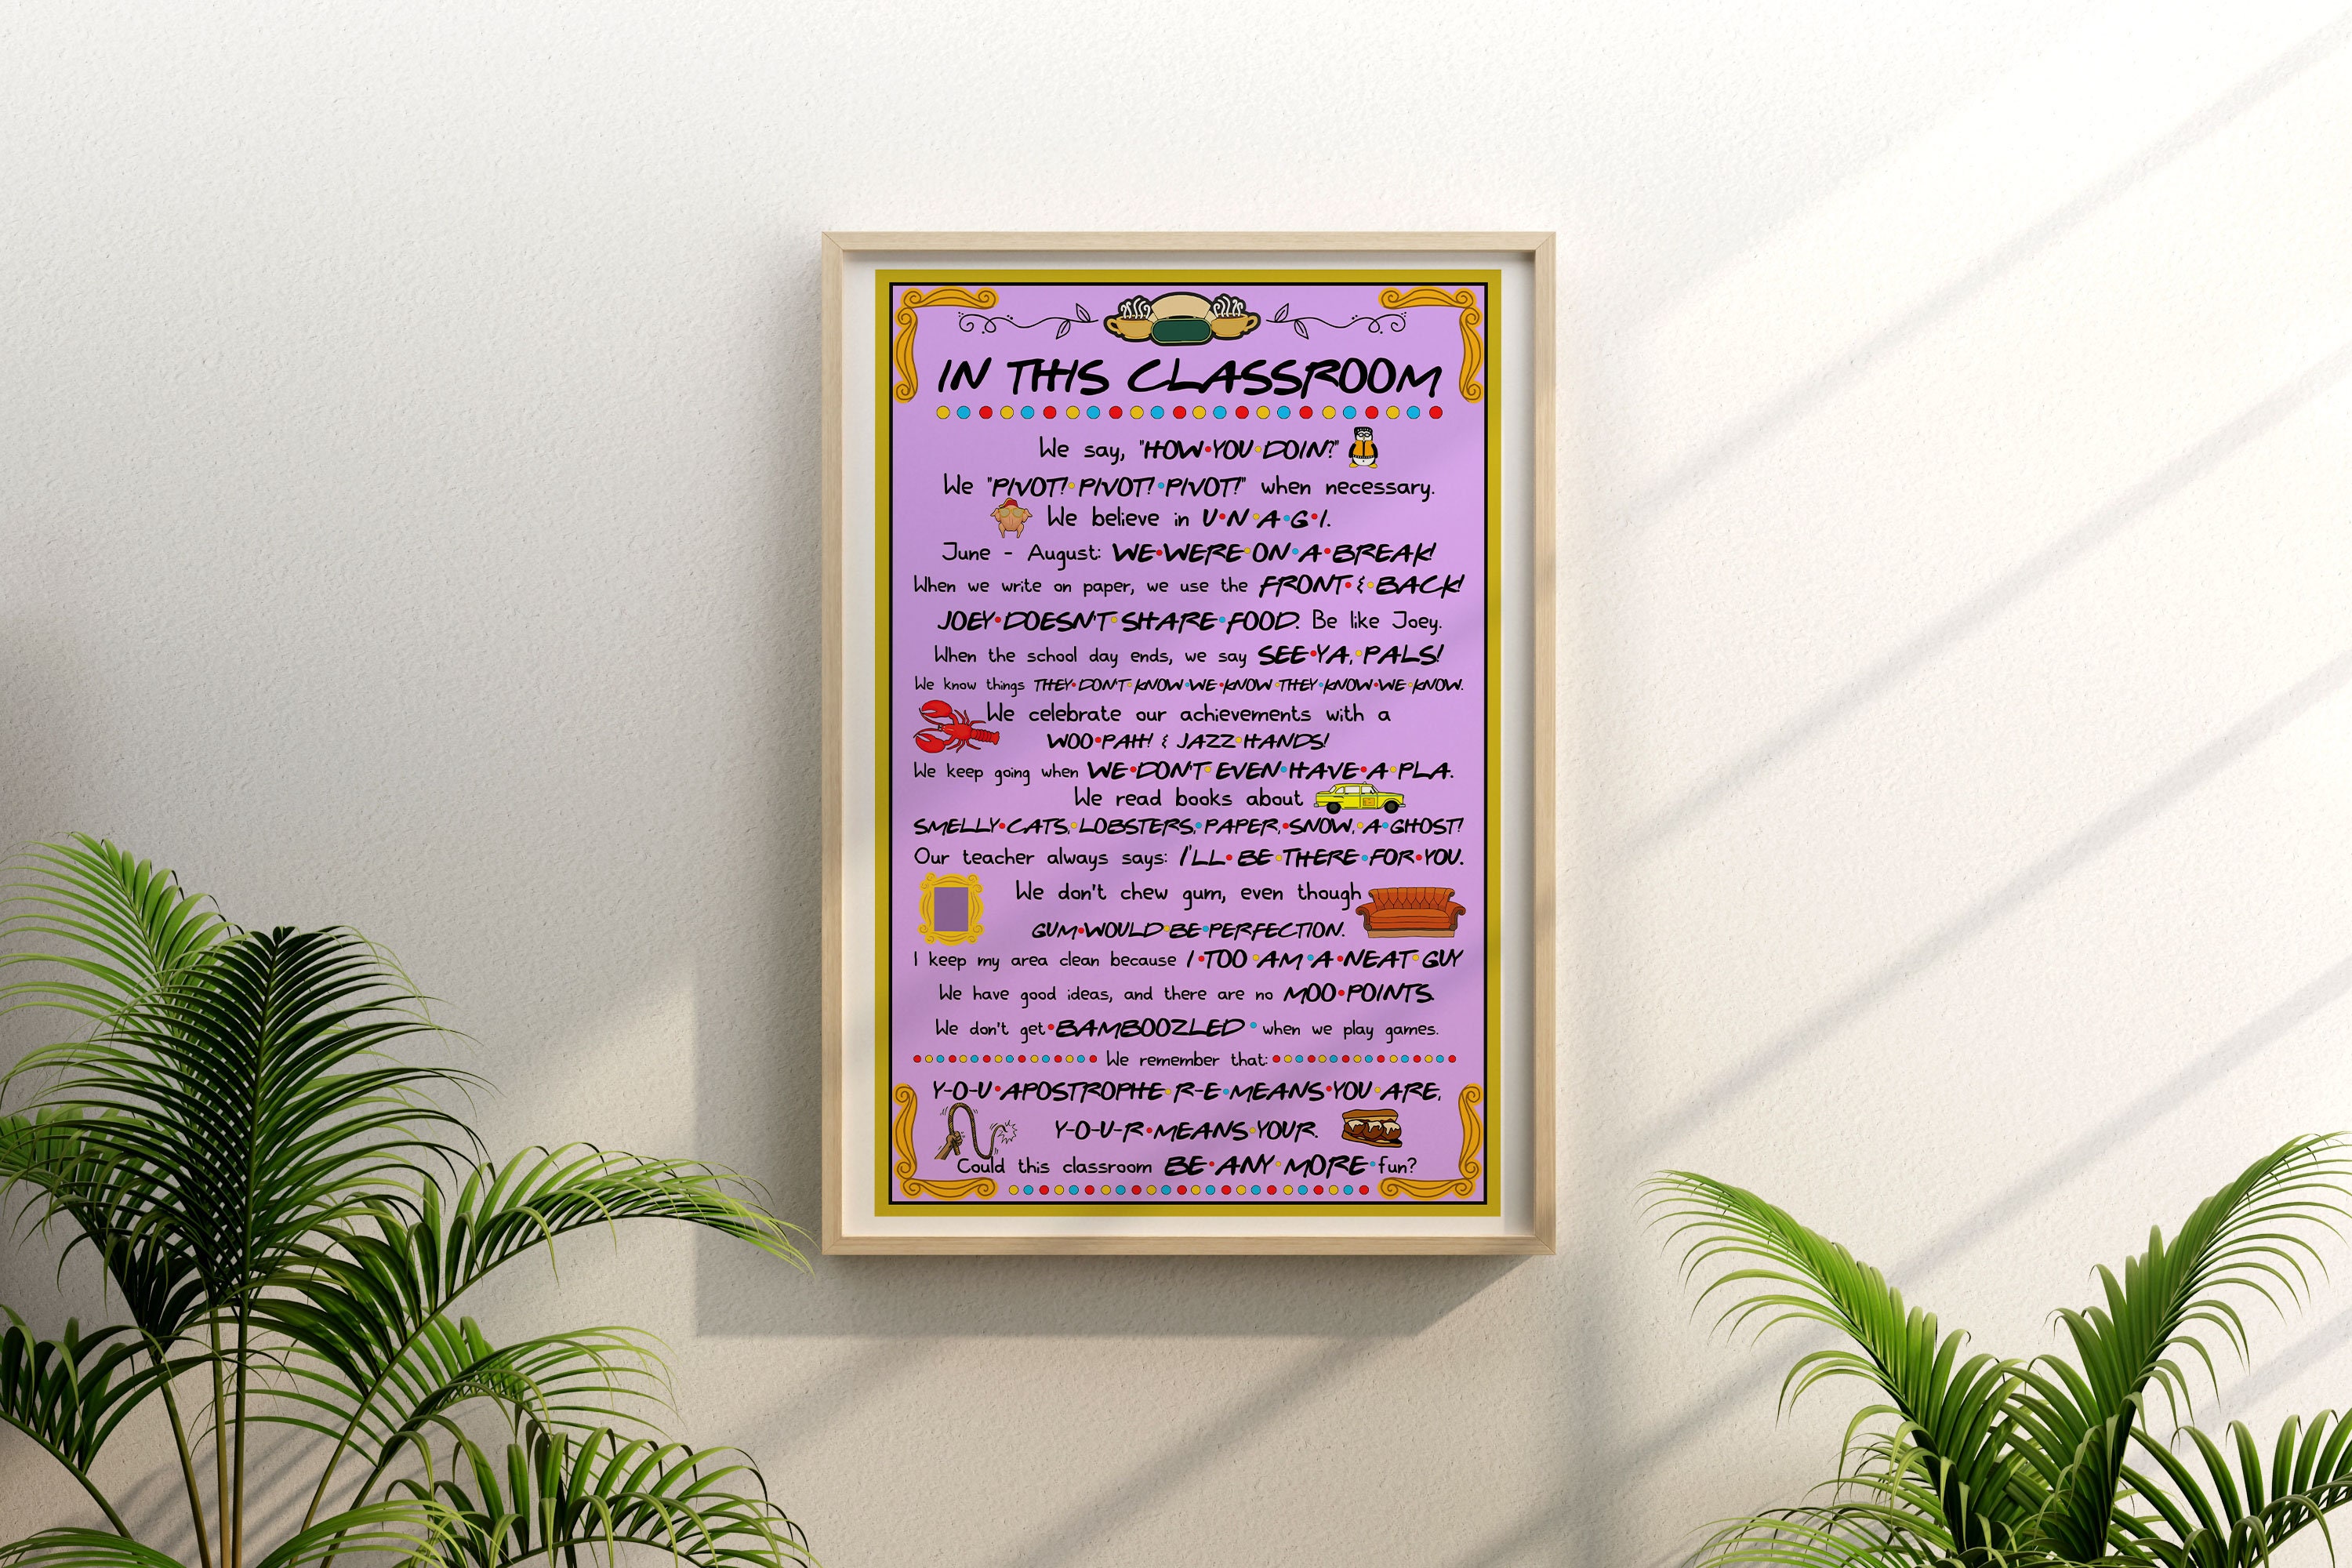 IN THIS CLASSROOM
We say, "HOW•YOU•DOIN?"
We "PIVOT!•PIVOT!•PIVOT!" when necessary.
We believe in U•N•A•G•I.
June - August: WE•WERE•ON•A•BREAK!
When we write on paper, we use the FRONT•&•BACK!
JOEY•DOESN'T•SHARE•FOOD. Be like Joey.
When the school day ends, we say SEE•YA,•PALS!
We know things THEY•DON'T•KNOW•WE•KNOW•THEY•KNOW•WE•KNOW.
We celebrate our achievements with a
WOO•PAH! & JAZZ•HANDS!
We keep going when WE•DON'T•EVEN•HAVE•A•PLA.
We read books about
SMELLY•CATS,•LOBSTERS,•PAPER,•SNOW,•A•GHOST!
Our teacher always says: I'LL•BE•THERE•FOR•YOU.
We don't chew gum, even though
GUM•WOULD•BE•PERFECTION.
I keep my area clean because I•TOO•AM•A•NEAT•GUY
We have good ideas, and there are no MOO•POINTS.
We don't get•BAMBOOZLED•when we play games.
We remember that:
Y-O-U•APOSTROPHE•R-E•MEANS•YOU•ARE,
Y-O-U-R•MEANS•YOUR.
Could this classroom BE•ANY•MORE•fun?